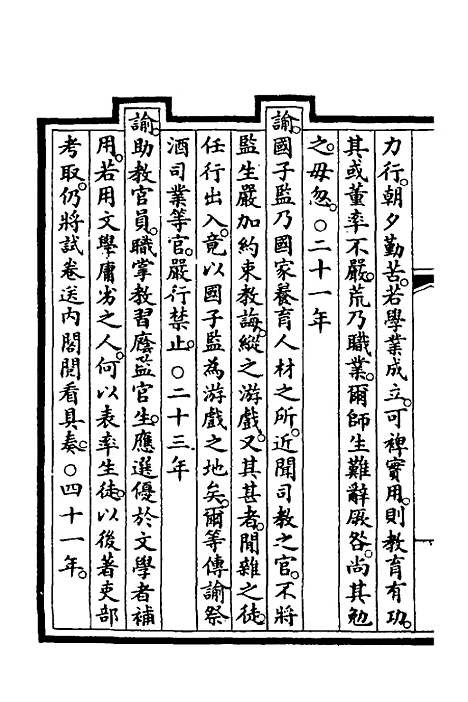 力行。朝夕勤苦。若學業成立。可裨實用。則教育有功。
其或董率不嚴。荒乃職業。爾師生難辭厥咎。尚其勉
之。毋忽。○二十一年
諭。國子監乃國家養育人材之所。近聞司教之官。不將
監生嚴加約束教誨。縱之游戲。又其甚者。閒雜之徒。
任行出入。竟以國子監為游戲之地矣。爾等傳諭祭
酒司業等官。嚴行禁止。○二十三年
諭。助教官員。職掌教習廕監官生。應選優於文學者補
用。若用文學庸劣之人。何以表率生徒。以後著吏部
考取。仍將試卷送內閣閱看具奏。○四十一年。